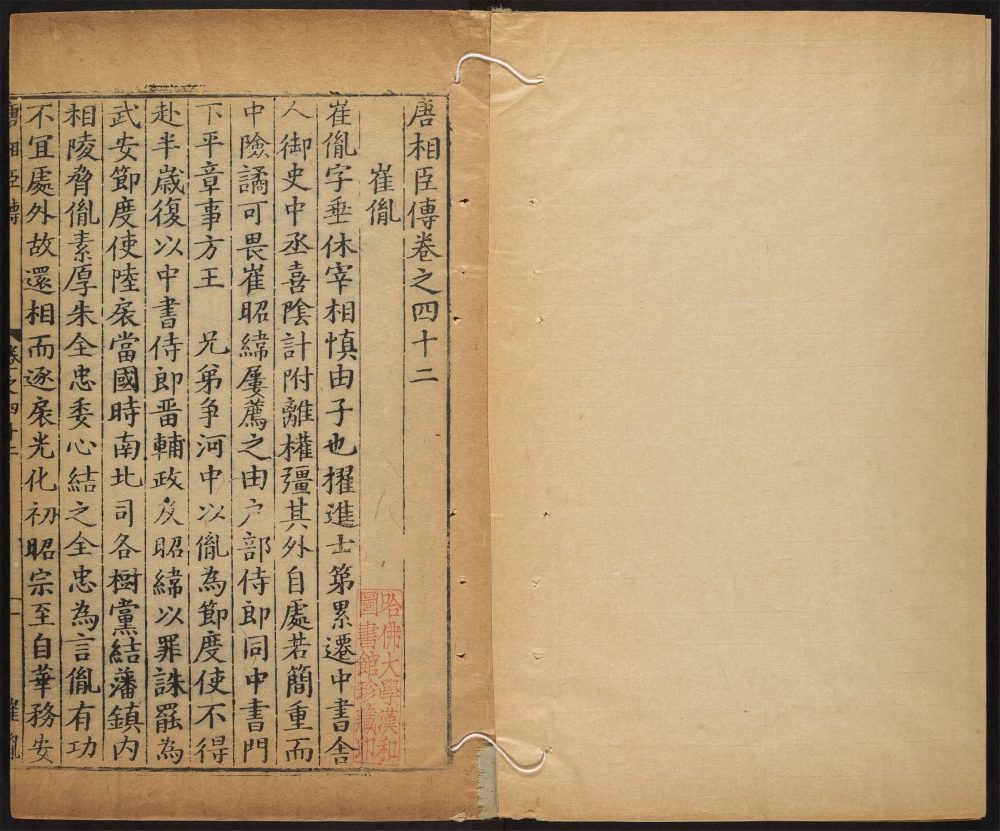 唐相臣傳卷之四十二
崔胤
崔胤字垂休宰相慎由子也擢進士第累遷中書舍
人御史中丞喜陰計附離權彊其外自處若簡重而
中險譎可畏崔昭緯屢薦之由户部侍郎同中書門
下平章事方王 兄弟爭河中以胤為節度使不得
赴半歲復以中書侍郎畱輔政及昭緯以罪誅罷為
武安節度使陸扆當國時南北司各樹黨結藩鎮内
相陵脅胤素厚朱全忠委心結之全忠為言胤有功
不宜處外故還相而逐扆光化初昭宗至自華務安
唐相臣傳 卷之四十二 一 崔胤
哈佛大學漢和
圖書館珍藏印